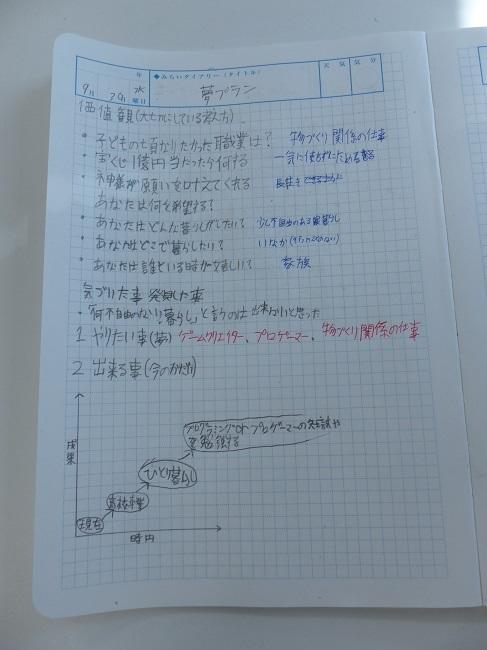 年 ◆みらいダイアリー(タイトル) 天気 気分
9月 20日 水曜日 夢プラン
価値観(大切にしている考え方)
・子どもの頃なりたかった職業は? 物づくり関係の仕事
・宝くじ1億円当たったら何する 一気に使わずにためる
・神様が願いを叶えてくれる 長生き
あなたは何を希望する?
・あなたはどんな暮らしがしたい? 少し不自由のある暮らし
・あなたはどこで暮らしたい? いなか
・あなたは誰といる時が楽しい? 家族
気づいた事 発見した事
・「何不自由のない暮らし」と言うのは出来ないと思った
1 やりたい事(夢) ゲームクリエイター、プロゲーマー、物づくり関係の仕事
2 出来る事(今のかだい)
成果
プログラミングorプロゲーマーの知識や
を勉強する
ひとり暮らし
高校卒業
現在
時間